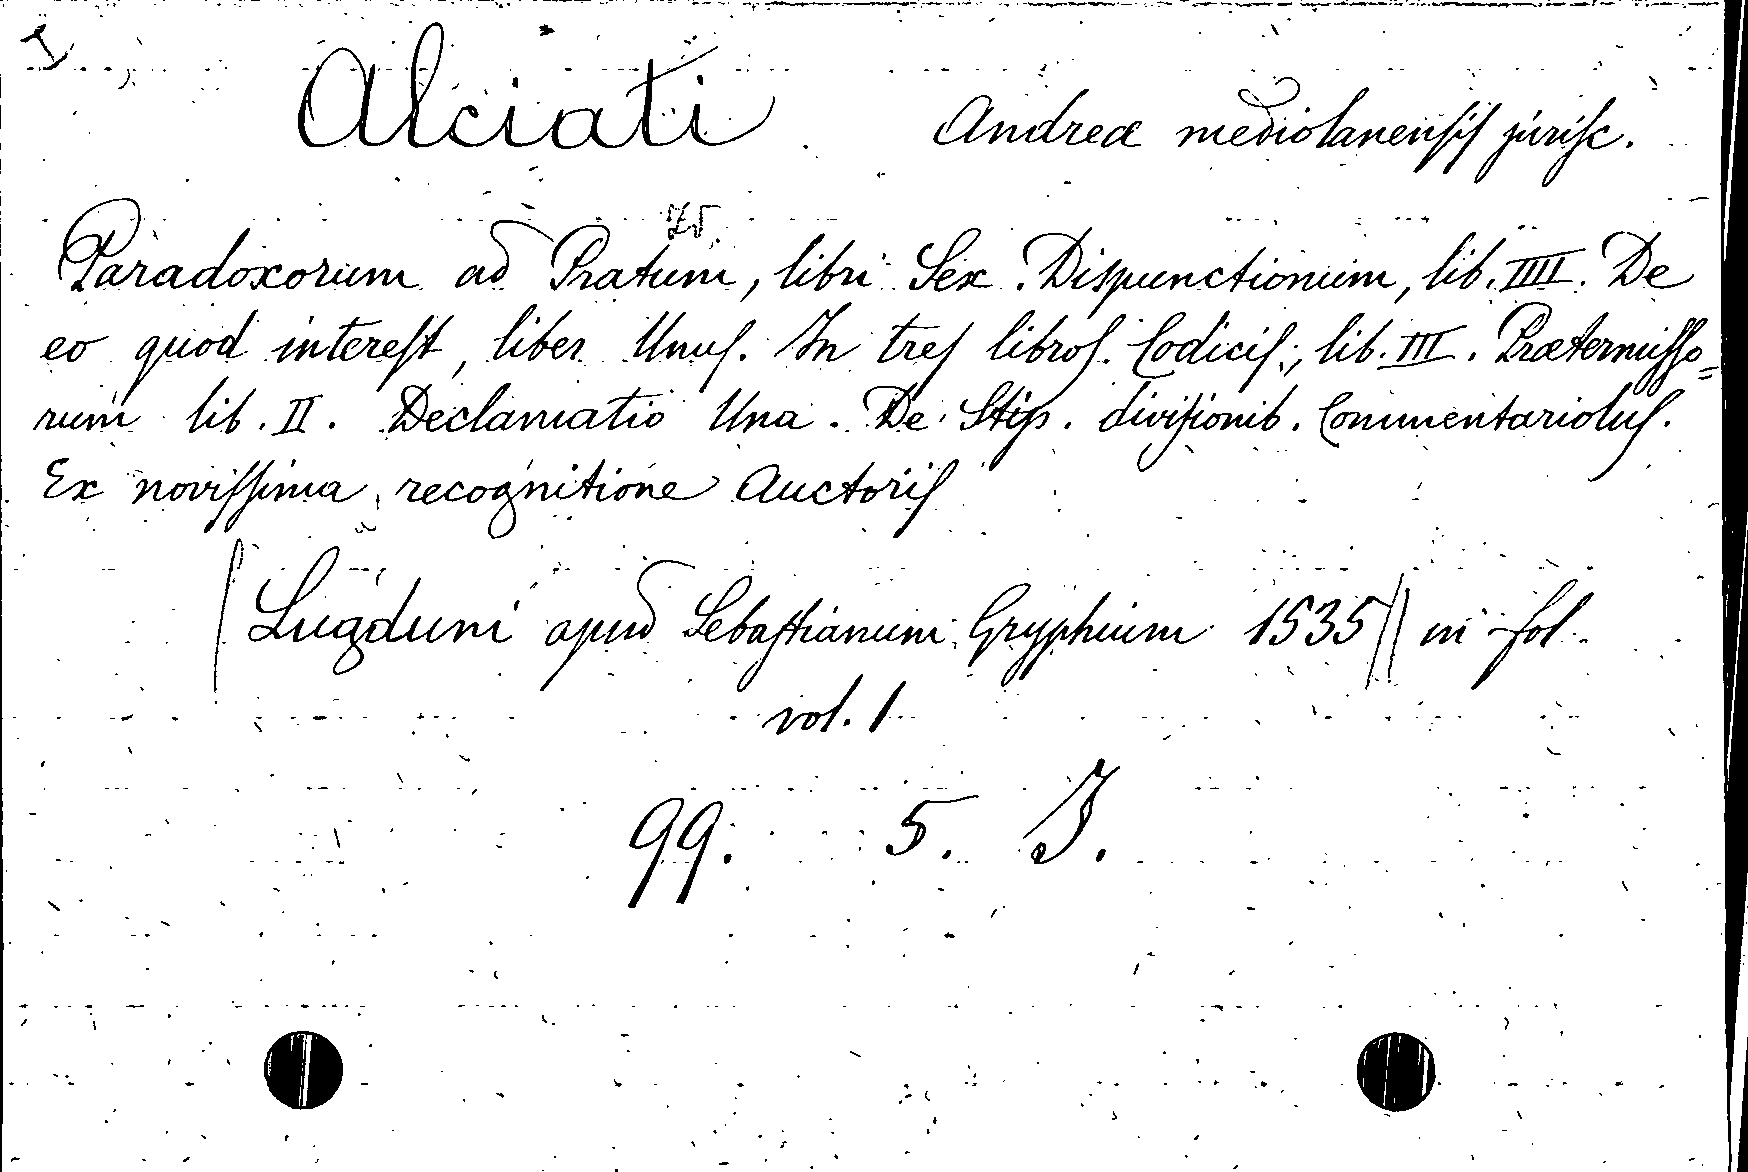 I
Alciati Andreæ mediolanenſiſ juriſc.
Paradoxorum ad Pratum, libri Sex. Dispunctionum, lib. IIII. De
eo quod intereſt, liber Unuſ. In treſ libroſ. Codiciſ, lib. III. Prætermiſſo=
rum lib. II. Declamatio Una. De Stip. diviſionib. Commentarioluſ.
Ex noviſſima recognitione Auctoriſ
(Lugduni apud Sebaſtianum Gryphium 1535)) in fol.
vol. 1
99. 5. I.